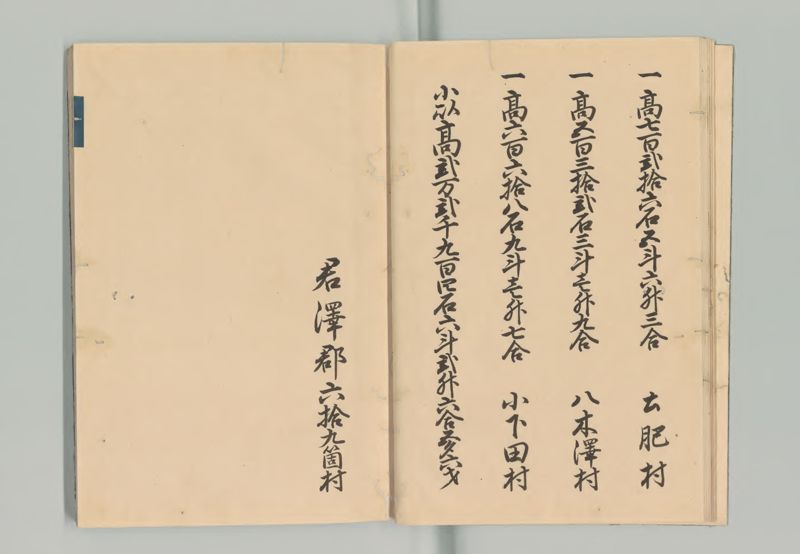 一高七百弐拾六石五斗六升三合 土肥村
一高五百三拾弐石三斗壱升九合 八木澤村
一高六百六拾八石九斗壱升七合 小下田村
小以高弐万弐千九百四石六斗弐升六合五夕六才
君澤郡六拾九箇村